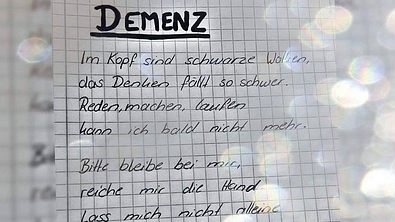 DEMENZ
Im Kopf sind schwarze Wolken,
das Denken fällt so schwer.
Reden, machen, laufen
kann ich bald nicht mehr.
Bitte bleibe bei mir,
reiche mir die Hand
Lass mich nicht alleine